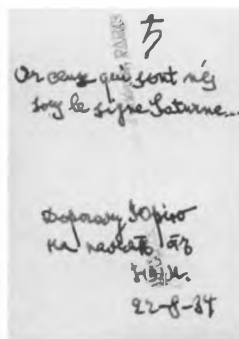 ♄
Or ceux qui sont nés
sous le signe Saturne...
Дорогому Юрию
на память от
22-8-34